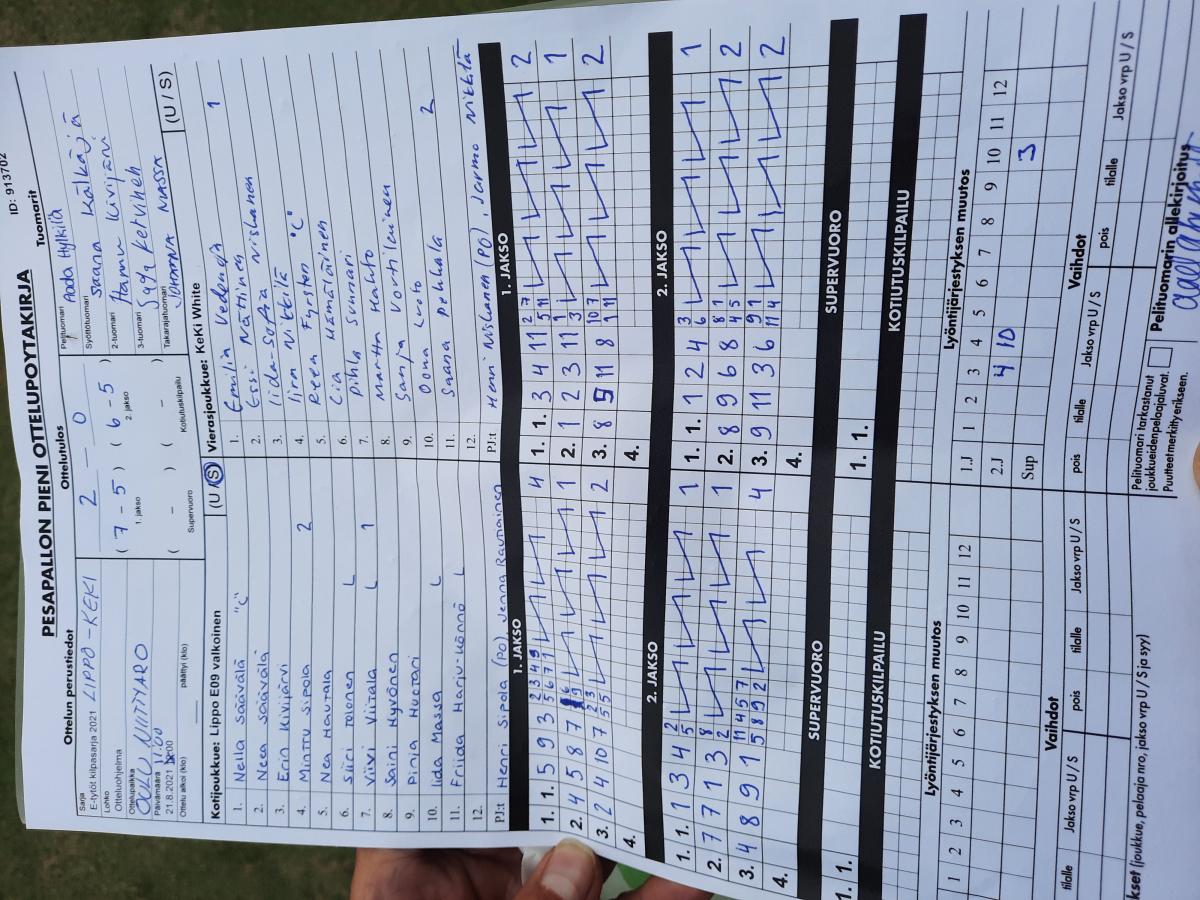 ID: 913702
PESÄPALLON PIENI OTTELUPÖYTÄKIRJA
Ottelun perustiedot
Sarja
E-tytöt kilpasarja 2021 LIPPO-KEKI
Lohko
Otteluohjelma
Ottelupaikka
OULU NIITTYARO
Päivämäärä 11.00
21.8.2021
Ottelu alkoi (klo)
päättyi (klo)
Ottelutulos
2 — 0
( 7 - 5 ) ( 6 - 5 )
1. jakso 2. jakso
( - ) ( - )
Supervuoro Kotiutuskilpailu
Tuomarit
Pelituomari Aada Hylkilä
Syöttötuomari Saana Kälkäjä
2-tuomari Hannu Kivijärvi
3-tuomari
Takarajatuomari JOHANNA MASSA
Kotijoukkue: Lippo E09 valkoinen (U / S)
1. Nella Säävälä "C"
2. Neea Säävälä
3. Erin Kivijärvi
4. Minttu Sipola 2
5. Nea Hautala
6. Siiri Tolonen L
7. Viivi Viitala L 1
8. Saini Hyvönen
9. Pinja Huotari
10. Iida Massa L
11. Friida Harju-Könnö L
12.
PJ:t Henri Sipola (PO) Jenna Raunainen
Vierasjoukkue: KeKi White (U / S)
1. Emilia Vedenoja 1
2. Essi Nättinen
3. Iida-Sofia Niskanen
4. Iira Nikkilä
5. Reea Fyrsten "C"
6. Lia Hämäläinen
7. Pihla Sunnari
8. Martta Kauto
9. Sanja Vortileinen
10. Oona Luoto 2
11. Saana Pelkola
12.
PJ:t Henni Niskanen (PO), Jarmo Nikkilä
1. JAKSO
1. 1. 1 5 9 3 2 3 4 9 5 6 7 1 4
2. 4 5 8 7 1
3. 2 4 10 7 2 3 5 5 2
4.
1. JAKSO
1. 1. 3 4 11 2 7 5 11 2
2. 1 2 3 11 1 3 1
3. 8 5 11 8 10 7 1 11 2
4.
2. JAKSO
1. 1. 1 3 4 2 5 1
2. 7 7 1 3 8 2 1
3. 4 8 9 1 11 4 5 7 5 8 9 2 4
4.
2. JAKSO
1. 1. 1 2 4 3 6 1
2. 8 9 6 8 8 1 4 5 2
3. 9 11 3 6 9 1 11 4 2
4.
SUPERVUORO
1. 1.
SUPERVUORO
1. 1.
KOTIUTUSKILPAILU
KOTIUTUSKILPAILU
Lyöntijärjestyksen muutos
1 2 3 4 5 6 7 8 9 10 11 12
Lyöntijärjestyksen muutos
1.J 1 2 3 4 5 6 7 8 9 10 11 12
2.J 4 10
Sup 3
Vaihdot
tilalle Jakso vrp U / S pois tilalle Jakso vrp U / S
Vaihdot
pois tilalle Jakso vrp U / S pois tilalle Jakso vrp U / S
kset (joukkue, pelaaja nro, jakso vrp U / S ja syy)
Pelituomari tarkastanut
joukkueidenpelaajaluvat.
Puutteetmerkittyerikseen.
Pelituomarin allekirjoitus